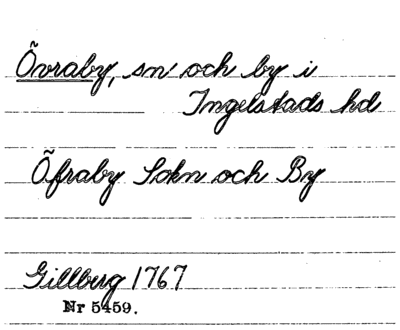 Övraby, sn och by i
Ingelstads hd
Öfraby Sokn och By
Gillberg 1767
Nr 5459.